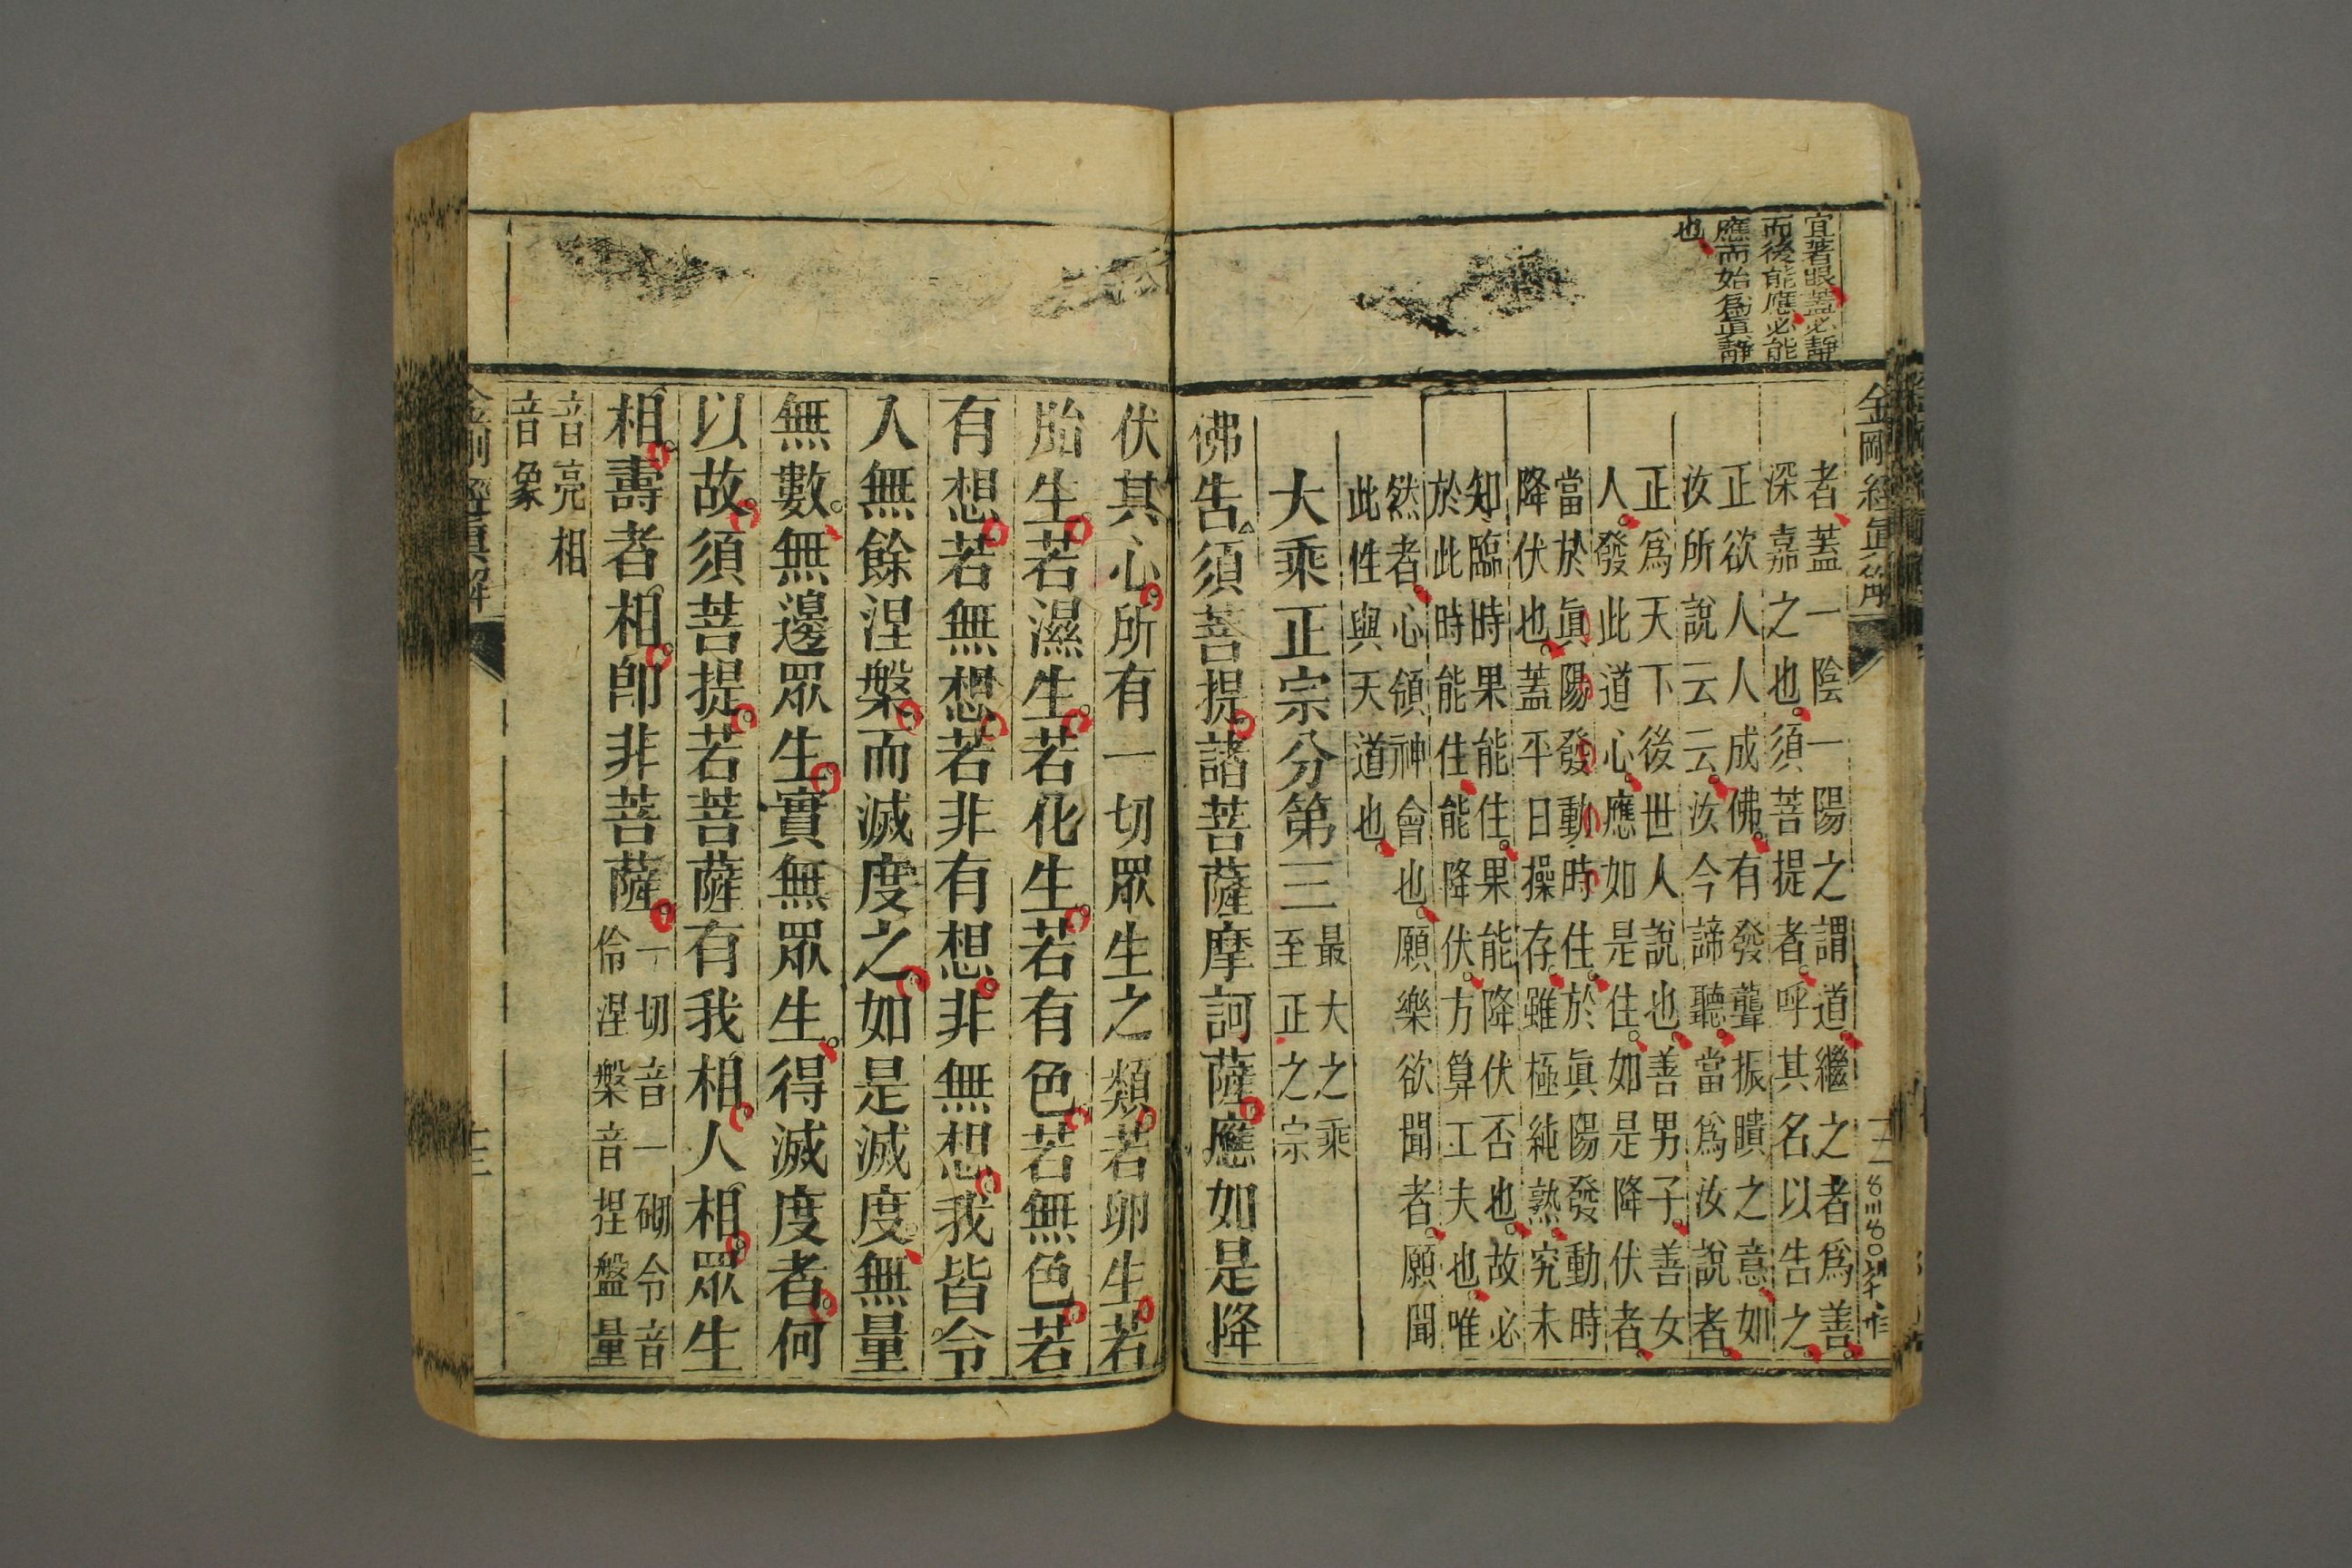 宜著眼蓋必靜
而後能應必能
應而始爲眞靜
也
者蓋一陰一陽之謂道繼之者爲善
深嘉之也須菩提者呼其名以告之
正欲人人成佛有發聾振聵之意如
汝所說云云汝今諦聽當爲汝說者
正爲天下後世人說也善男子善女
人發此道心應如是住如是降伏者
當於眞陽發動時住於眞陽發動時
降伏也蓋平日操存雖極純熟究未
知臨時果能住果能降伏否也故必
於此時能住能降伏方算工夫也唯
然者心領神會也願樂欲聞者願聞
此性與天道也
大乘正宗分第三
最大之乘
至正之宗
佛告須菩提諸菩薩摩訶薩應如是降
伏其心所有一切眾生之類若卵生若
胎生若濕生若化生若有色若無色若
有想若無想若非有想非無想我皆令
入無餘涅槃而滅度之如是滅度無量
無數無邊眾生實無眾生得滅度者何
以故須菩提若菩薩有我相人相眾生
相壽者相卽非菩薩
一切音一砌令音
伶涅槃音捏盤量
音亮相
音象